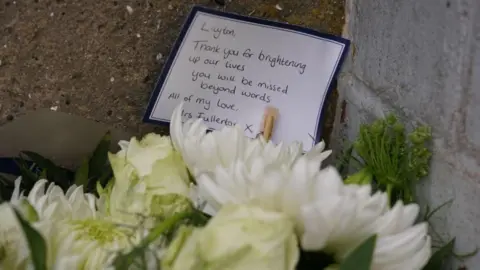 Layton,
Thank you for brightening
up our lives
you will be missed
beyond words
All of my love
Mrs Fullerton x